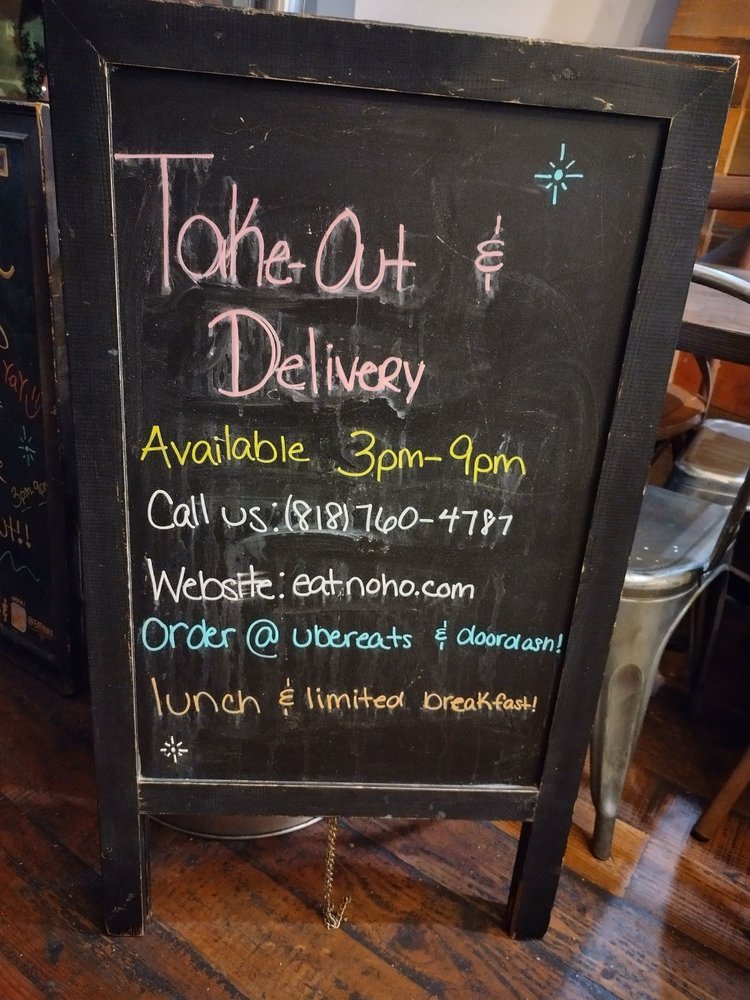 Take-Out &
Delivery
Available 3pm-9pm
Call us: (818) 760-4787
Website: eatnoho.com
Order @ ubereats & doordash!
lunch & limited breakfast!
YAY!!
3pm-9pm